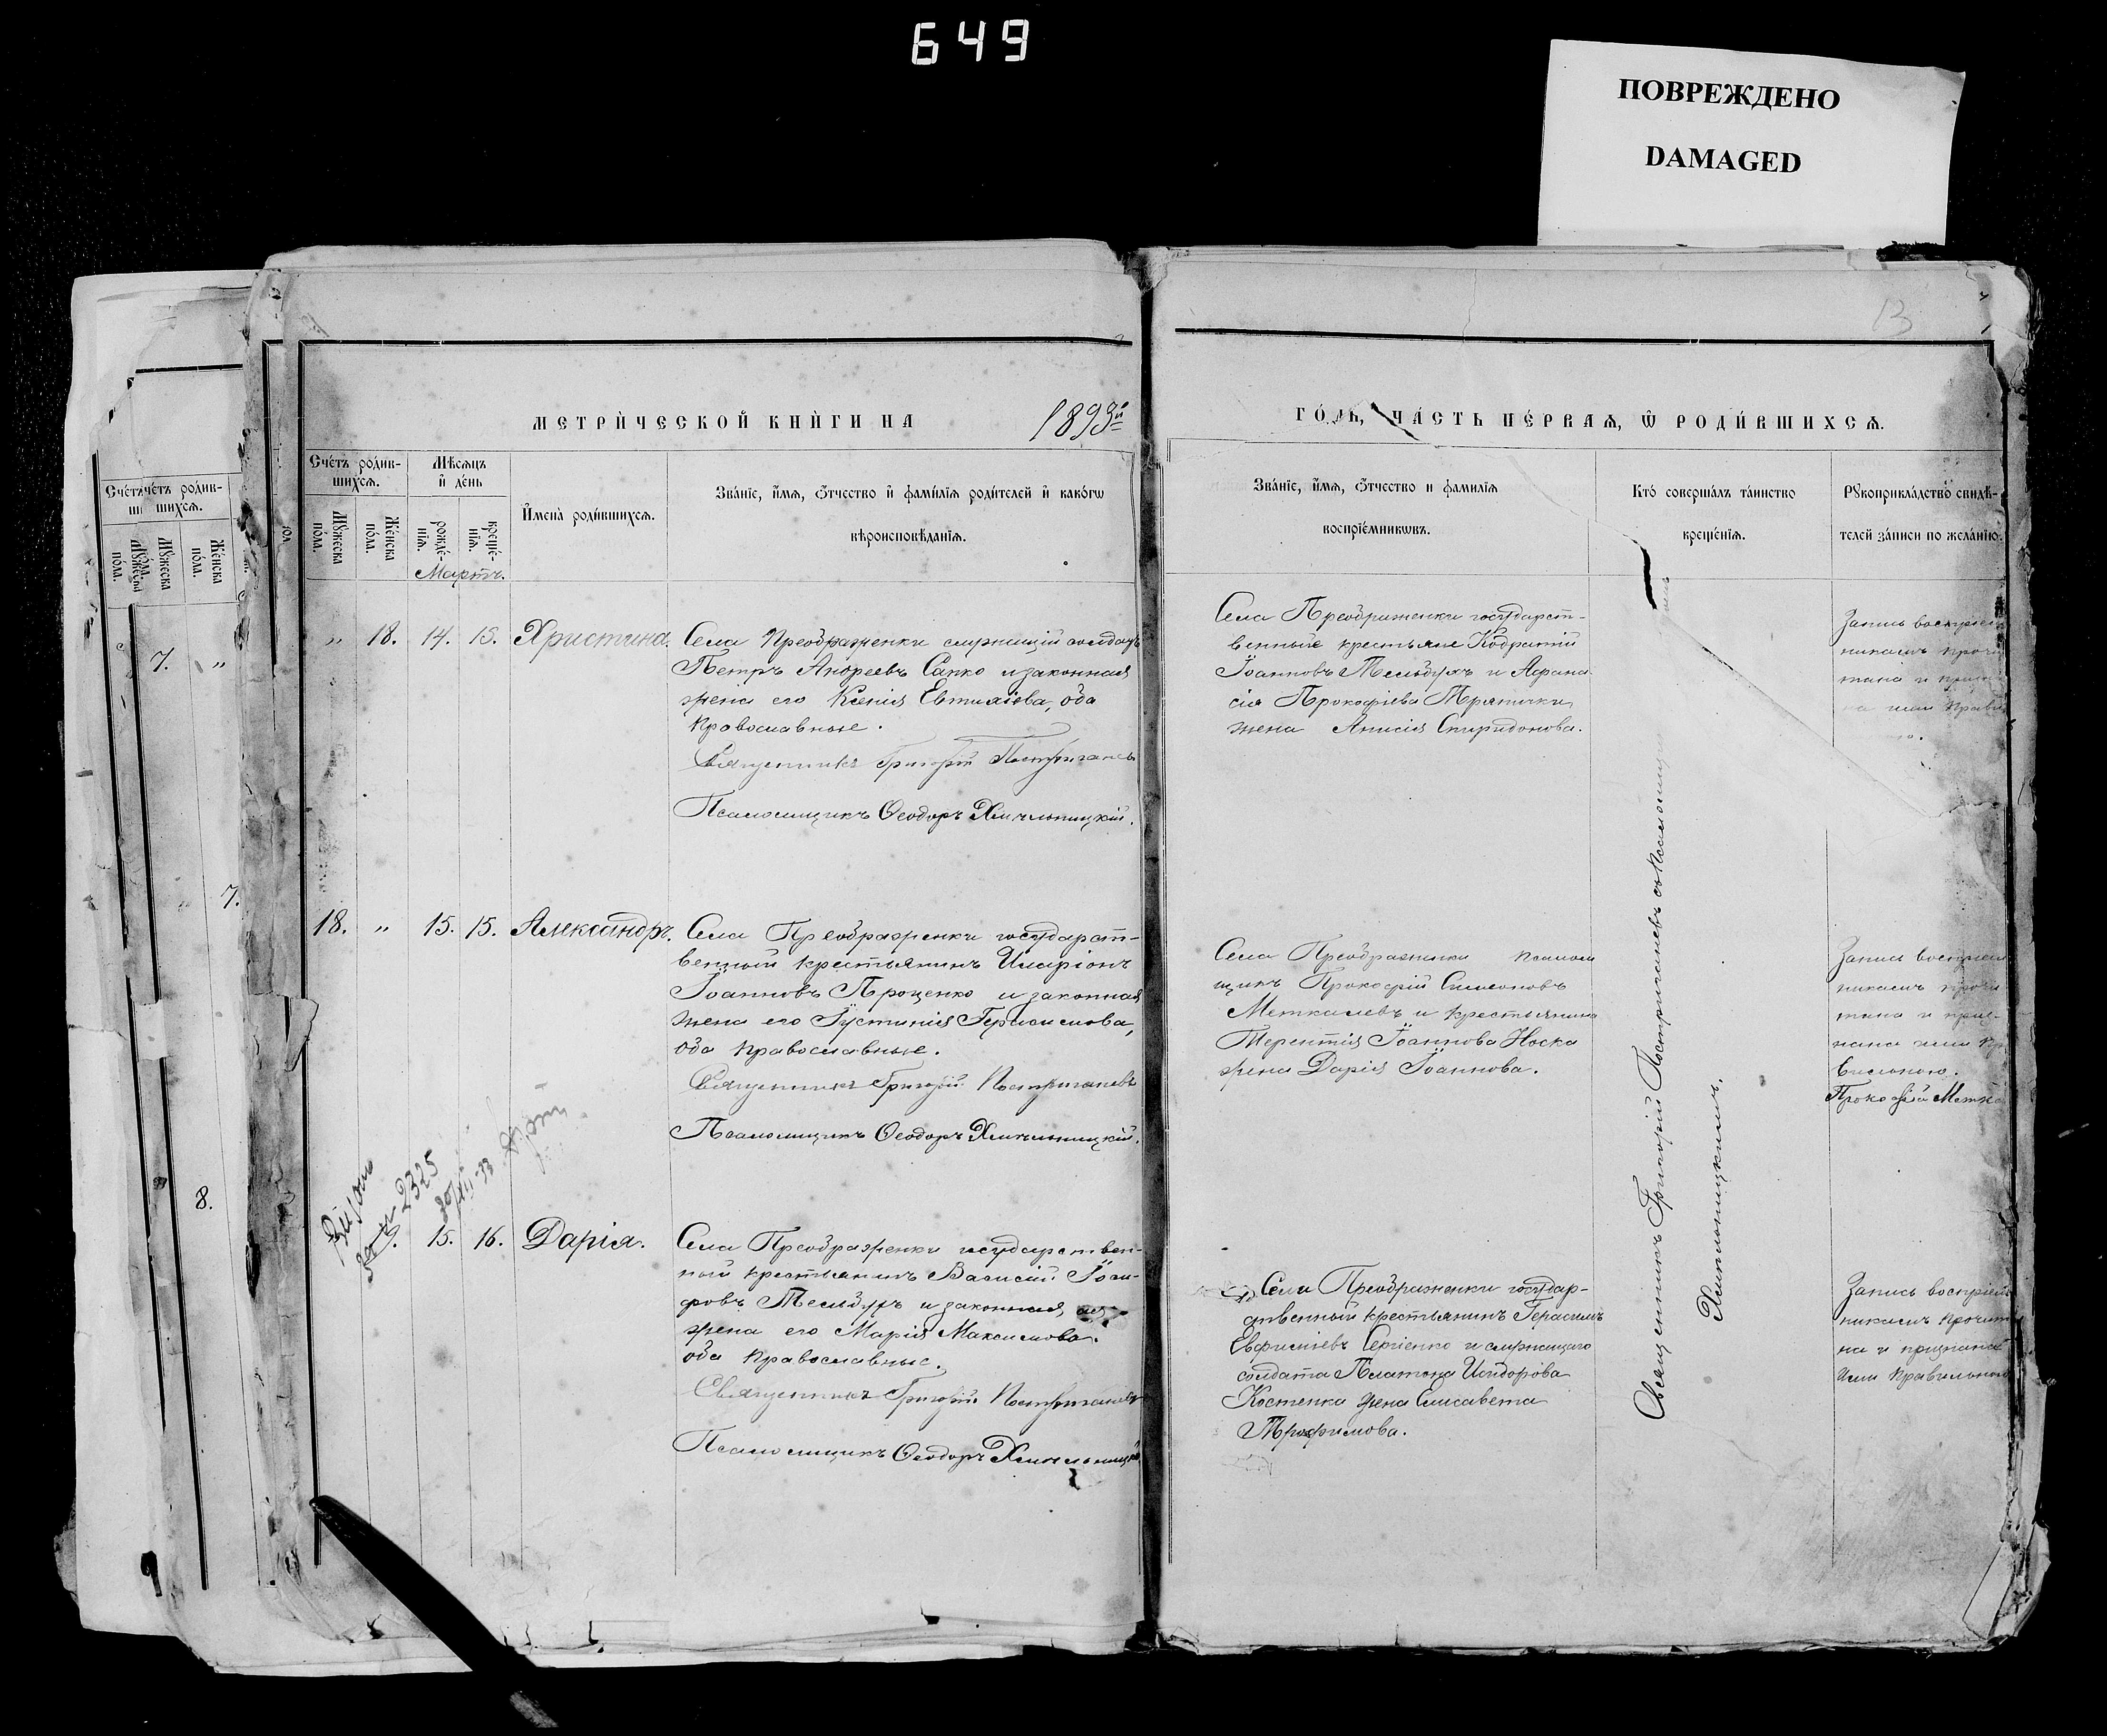 649
ПОВРЕЖДЕНО
DAMAGED
13
МЕТРИ́ЧЕСКОЙ КНИ́ГИ НА 1893й
ГО́ДЪ, ЧА́СТЬ ПЕ́РВАѦ, Ѿ РОДИ́ВШИХСѦ.
Сче́тъ роди́в-
шихсѧ.
Мѣсѧцъ
и҆ де́нь
Мꙋ́жеска
по́ла.
Же́нска
по́ла.
рожде́-
нїѧ.
креще́-
нїѧ.
И҆мена̀ роди́вшихсѧ.
Зва́нїе, и҆́мѧ, ѻ҆́тчество и҆ фами́лїѧ роди́телей и҆ како́гѡ
вѣроисповѣ́данїѧ.
Зва́нїе, и҆́мѧ, ѻ҆́тчество и фами́лїѧ
воспрїе́мникѡвъ.
Кто̀ соверша́лъ та́инство
креще́нїѧ.
Рꙋкоприкла́дство свидѣ́-
телей за́писи по жела́нїю.
Мартъ.
" 18. 14. 15. Христина.
Села Преображенки служащій солдатъ
Петръ Андреевъ Сапко и законная
жена его Ксенія Евтихіева, оба
православные.
Священникъ Григорій Постриганевъ
Псаломщикъ Ѳеодоръ Хмильницкій.
Села Преображенки государст-
венные крестьяне Кодратій
Іоанновъ Тельбухъ и Афана-
сія Прокофіева Мрячки
жена Анисія Спиридонова.
Запись воспріем
никамъ прочи
тана и приз
на ими правил
18. " 15. 15. Александръ.
Села Преображенки государст-
венный крестьянинъ Иларіонъ
Іоанновъ Проценко и законная
жена его Іустинія Герасимова,
оба православные.
Священникъ Григорій Постриганевъ
Псаломщикъ Ѳеодоръ Хмильницкій.
Села Преображенки псалом
щикъ Прокофій Симеоновъ
Меткалевъ и крестьянина
Терентія Іоаннова Носка
жена Дарія Іоаннова.
Запись воспріем
никамъ прочи
тана и приз-
нана ими пр
вильною.
Прокофій Метка
2325
15. 16. Дарія.
Села Преображенки государствен-
ный крестьянинъ Василій Іоси-
фовъ Тельбухъ и законная
жена его Марія Максимова.
оба православные.
Священникъ Григорій Постриганевъ
Псаломщикъ Ѳеодоръ Хмильницкій
Села Преображенки государ-
ственный крестьянинъ Герасимъ
Евфиміевъ Сергіенко и служащаго
солдата Платона Исидорова
Костенка жена Елисавета
Трофимова.
Запись воспріем
никамъ прочита
на и признана
ими правильною
Священникъ Григорій Постриганевъ съ псаломщикомъ
Хмильницкимъ.
Сче́тъ роди́в-
шихсѧ.
Мꙋ́жеска
по́ла.
Же́нска
по́ла.
7. "
7.
8.